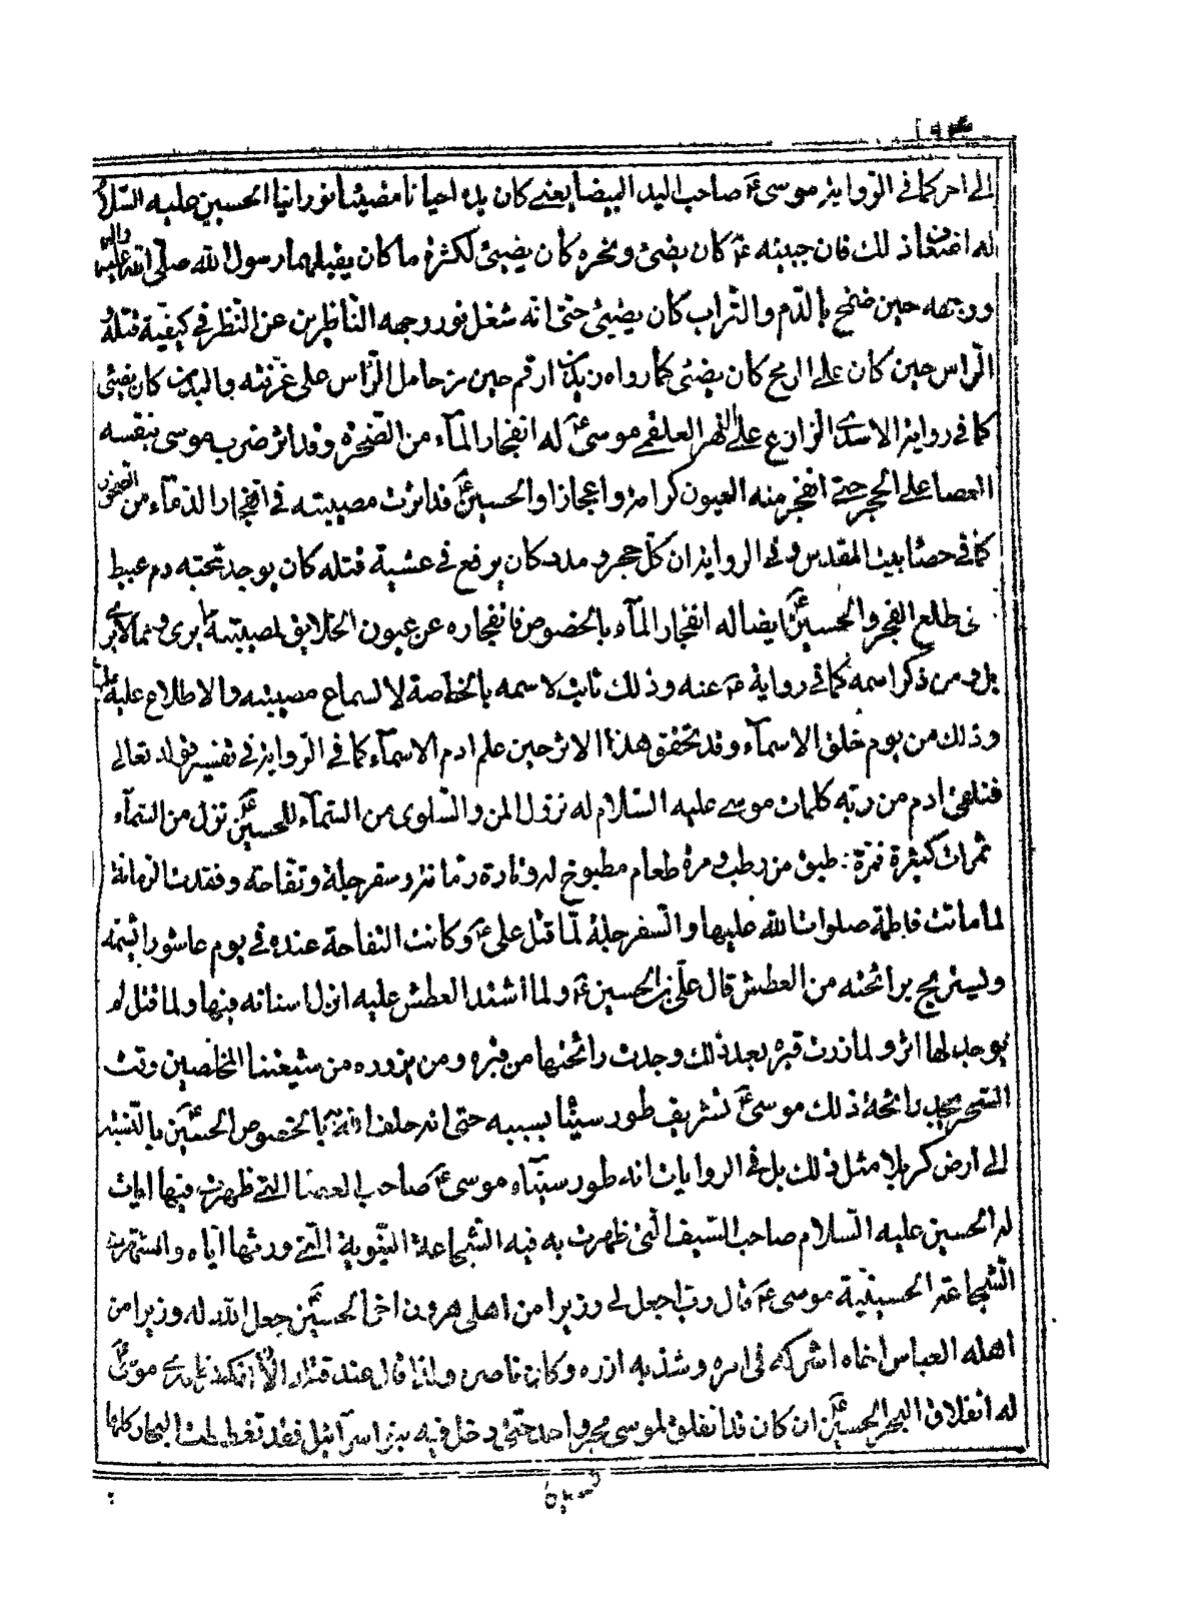 ١٩٣
الى اخر كما فى الرواية موسى ع صاحب اليد البيضا يعنى كان يده احيانا مضيئا نورانيا الحسين عليه السّلام
له ذلك فان جبينه ع كان يضئ ونحره كان يضيئ لكثرة ما كان يقبلهما رسول الله صلّى الله عليه واله
ووجهه حين ضمخ بالدّم والتّراب كان يضيئ حتى انه شغل نور وجهه النّاظرين عن النّظر فى كيفيّة قتله
الرّاس حين كان على الرمح كان يضئ كما رواه زيد بن ارقم حين مرّ حامل الرّاس على غرفته والبدن كان يضئ
كما فى رواية الاسدى الزارع على النّهر العلقمى موسى ع له انفجار المآء من الصّخرة وقد اثر ضرب موسى بنفسه
العصا على الحجر حتى انفجر منه العيون كرامة واعجازا والحسين ع قد اثرت مصيبته فى انفجار الدّمآء من الصخور
كما فى حصا بيت المقدس وفى الرواية ان كلّ حجر ومدر كان يرفع فى عشية قتله كان يوجد تحته دم عبيط
طلع الفجر والحسين ع ايضا له انفجار المآء بالخصوص فانفجاره عن عيون الخلايق لمصيبته ما يرى وممّا لا يرى
بل ومن ذكر اسمه كما فى رواية ع عنه وذلك ثابت لاسمه بالخاصة لا لسماع مصيبته والاطلاع عليه
وذلك من يوم خلق الاسمآء وقد تحقق هذا الاثر حين علم ادم الاسمآء كما فى الرّواية فى تفسير قوله تعالى
فتلقى ادم من ربّه كلمات موسى عليه السّلام له نزول المن والسّلوى من السّمآء للحسين ع نزل من السّمآء
ثمرات كثيرة فمرّة طبق من رطب ومرة طعام مطبوخ له وتارة رمّانة وسفرجلة وتفّاحة وفقدت الرمانة
لما ماتت فاطمة صلوات الله عليها والسّفرجلة لمّا قتل على ع وكانت التفاحة عنده فى يوم عاشورا يشمّه
ويستريح برائحته من العطش قال علىّ بن الحسين ع ولما اشتد العطش عليه انزل اسنانه فيها ولما قتل لم
يوجد لها اثر ولما زرت قبره بعد ذلك وجدت رائحتها من قبره ومن يزوره من شيعتنا المخلصين وقت
السّحر يجد رائحة ذلك موسى ع تشريف طور سينا بسببه حتى انه حلف الله به بالخصوص الحسين ع بالنّسبة
الى ارض كربلا مثل ذلك بل فى الروايات انه طور سينآء موسى ع صاحب العصا التى ظهرت فيها ايات
له الحسين عليه السّلام صاحب السّيف الّتى ظهرت به فيه الشّجاعة النّبوية التى ورثها ايّاه واشتهرت
الشّجاعة الحسينيّة موسى ع قال ربّ اجعل لى وزيرا من اهلى هرون اخى الحسين ع جعل الله له وزيرا من
اهله العباس اخاه اشركه فى امره وشدّ به ازره وكان ناصره ولذا قال عند قتله الآن انكسر ظهرى موسى ع
له انفلاق البحر الحسين ع ان كان قد انفلق لموسى بحر واحد حتى دخل فيه بنو اسرآئيل فقد تغطمطت البحار كلها